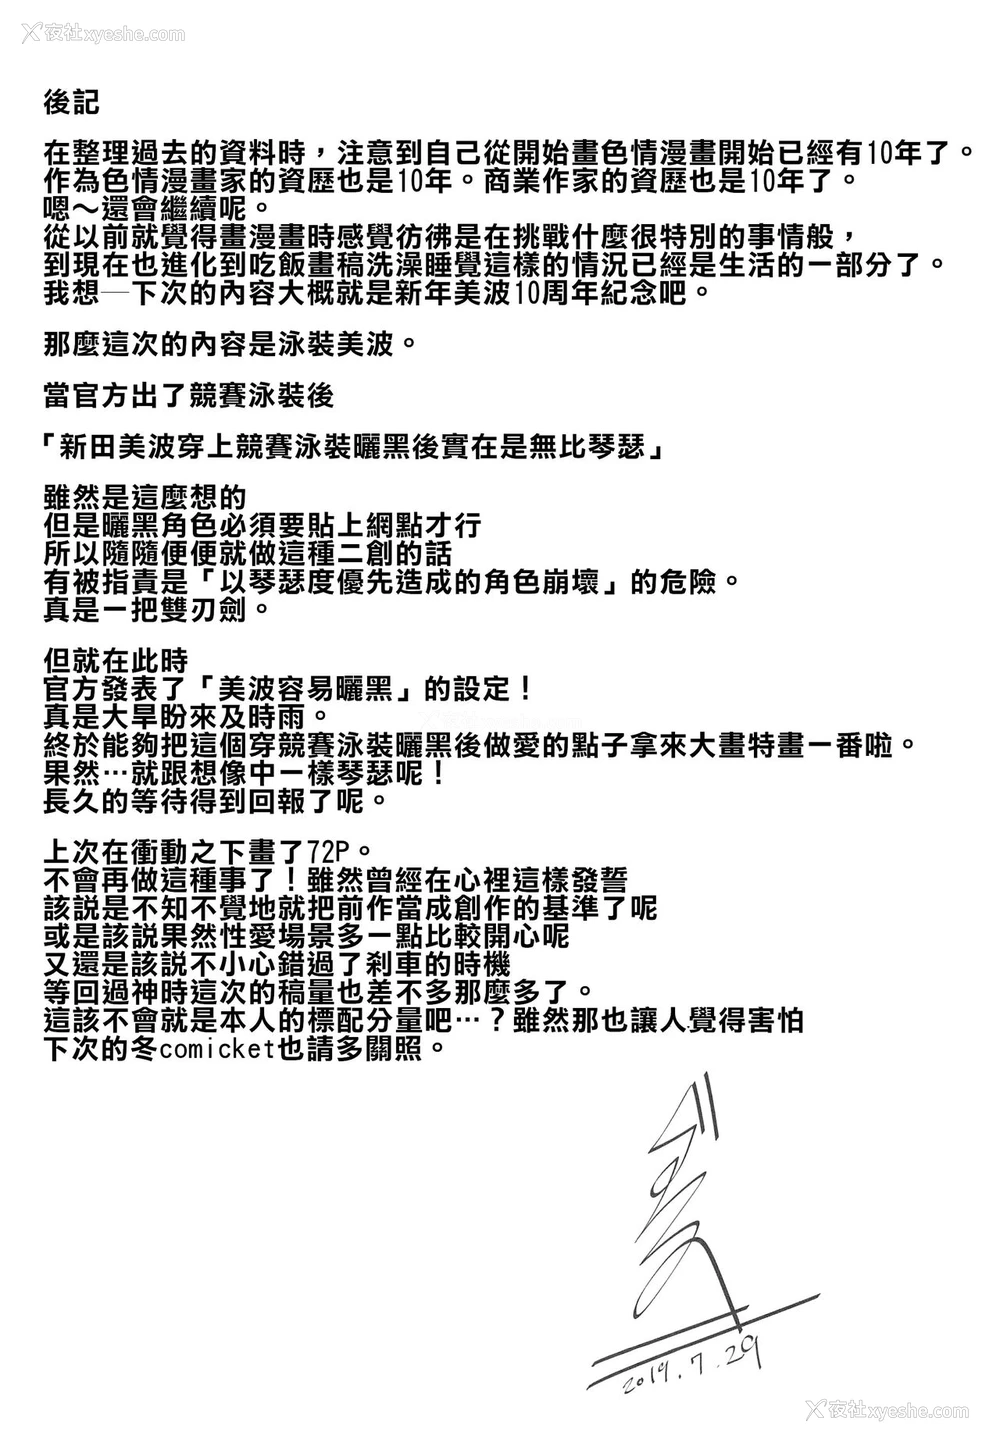 夜社xyeshe.com
後記
在整理過去的資料時，注意到自己從開始畫色情漫畫開始已經有10年了。
作為色情漫畫家的資歷也是10年。商業作家的資歷也是10年了。
嗯～還會繼續呢。
從以前就覺得畫漫畫時感覺彷彿是在挑戰什麼很特別的事情般，
到現在也進化到吃飯畫稿洗澡睡覺這樣的情況已經是生活的一部分了。
我想─下次的內容大概就是新年美波10周年紀念吧。
那麼這次的內容是泳裝美波。
當官方出了競賽泳裝後
「新田美波穿上競賽泳裝曬黑後實在是無比琴瑟」
雖然是這麼想的
但是曬黑角色必須要貼上網點才行
所以隨隨便便就做這種二創的話
有被指責是「以琴瑟度優先造成的角色崩壞」的危險。
真是一把雙刃劍。
但就在此時
官方發表了「美波容易曬黑」的設定！
真是大旱盼來及時雨。
終於能夠把這個穿競賽泳裝曬黑後做愛的點子拿來大畫特畫一番啦。
果然…就跟想像中一樣琴瑟呢！
長久的等待得到回報了呢。
上次在衝動之下畫了72P。
不會再做這種事了！雖然曾經在心裡這樣發誓
該説是不知不覺地就把前作當成創作的基準了呢
或是該説果然性愛場景多一點比較開心呢
又還是該説不小心錯過了剎車的時機
等回過神時這次的稿量也差不多那麼多了。
這該不會就是本人的標配分量吧…？雖然那也讓人覺得害怕
下次的冬comicket也請多關照。
2019.7.29
夜社xyeshe.com